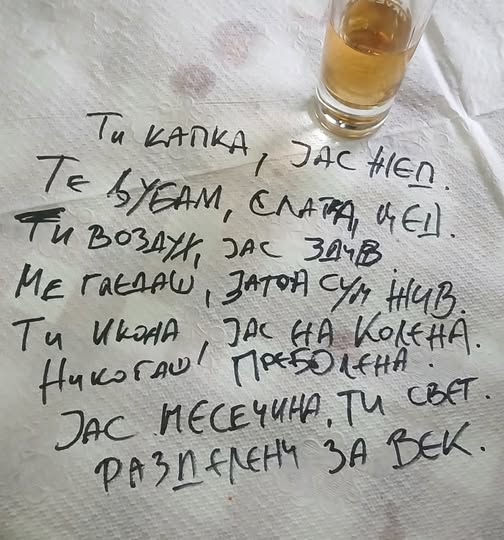 Ти капка, јас жеД.
Те љубам, слатка, цеД.
Ти воздух, јас здив
Ме гледаш, затоа сум жив.
Ти икона, јас на колена.
Никогаш преболена.
Јас месечина, ти свет.
Разделени за век.